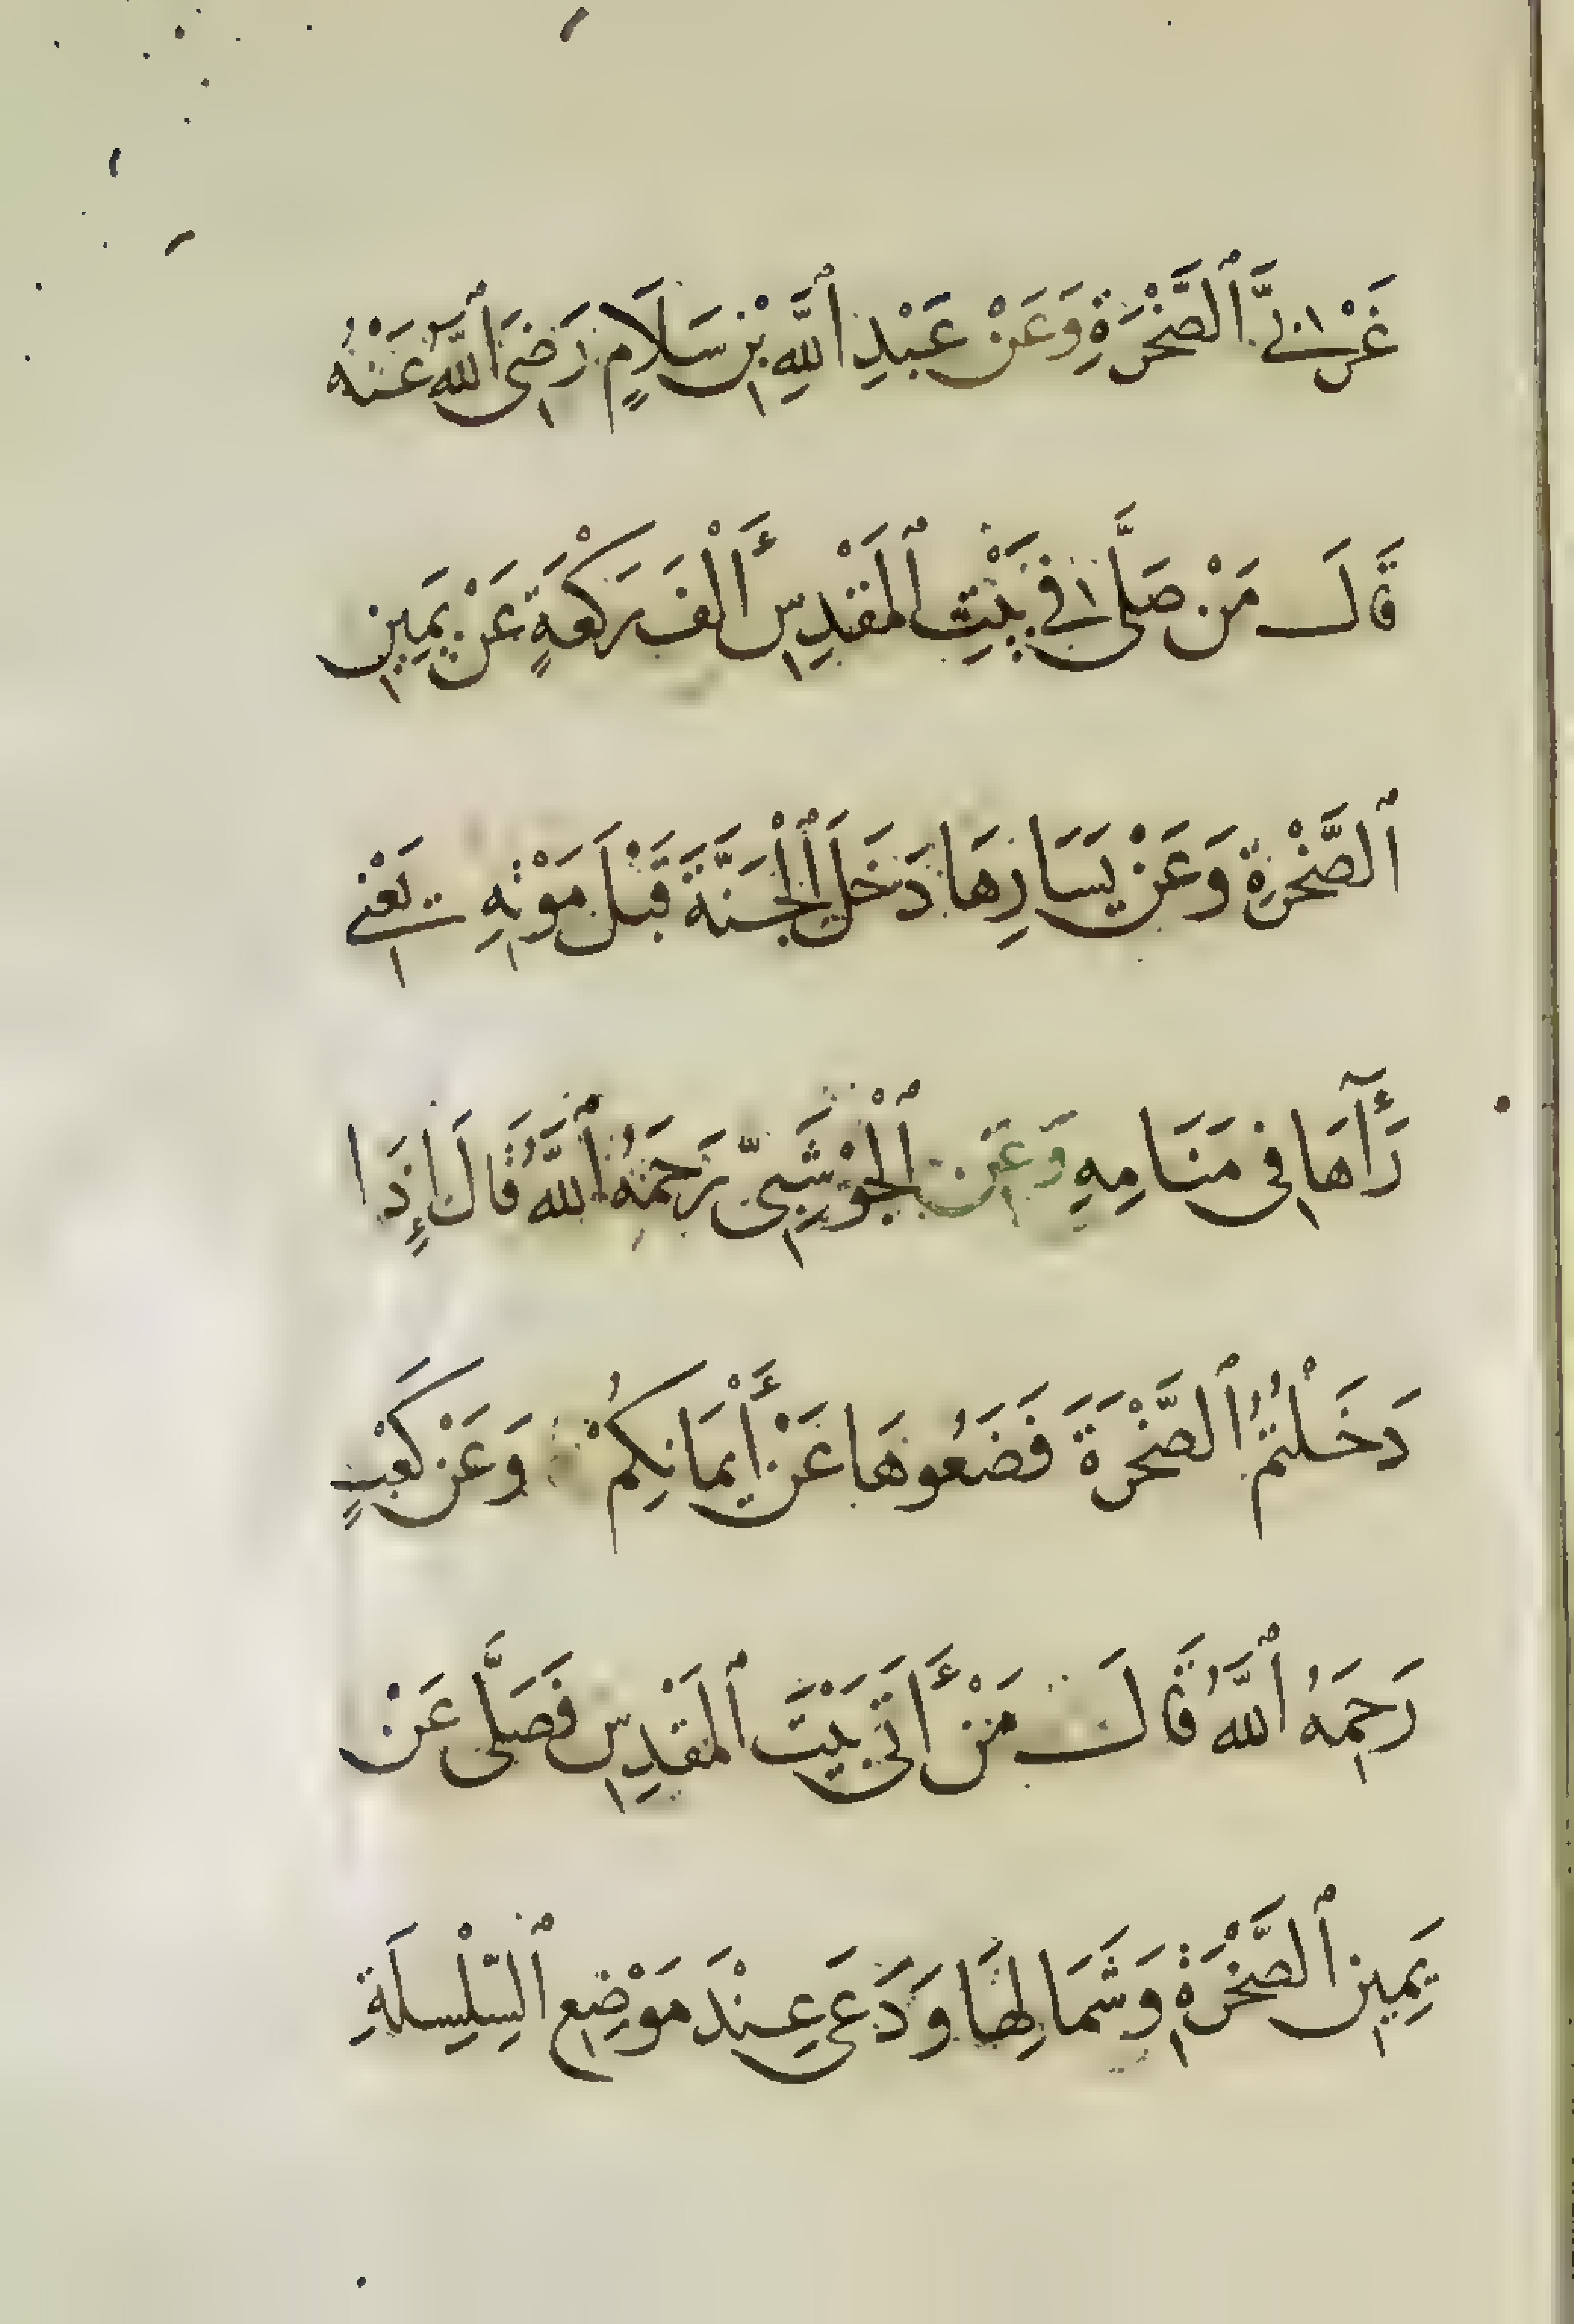 غَرْبِيَّ ٱلصَّخْرَةِ وَعَنْ عَبْدِ ٱللَّهِ بْنِ سَلَامٍ رَضِىَ ٱللَّهُ عَنْهُ
قَالَ مَنْ صَلَّى فِي بَيْتِ ٱلمَقْدِسِ أَلْفَ رَكْعَةٍ عَنْ يَمِينِ
ٱلصَّخْرَةِ وَعَنْ يَسَارِهَا دَخَلَ ٱلْجَنَّةَ قَبْلَ مَوْتِهِ يَعْنِي
رَأٓهَا فِى مَنَامِهِ وَعَنِ ٱلْحَوْشَبِىِّ رَحِمَهُ ٱللَّهُ قَالَ إِذَا
دَخَلْتُمُ ٱلصَّخْرَةَ فَضَعُوهَا عَنْ أَيْمَانِكُمْ وَعَنْ كَعْبٍ
رَحِمَهُ ٱللَّهُ قَالَ مَنْ أَتَى بَيْتَ ٱلمَقْدِسِ فَصَلَّى عَنْ
يَمِينِ ٱلصَّخْرَةِ وَشَمَالِهَا وَدَعَى عِنْدَ مَوْضِعِ ٱلسِّلْسِلَةِ